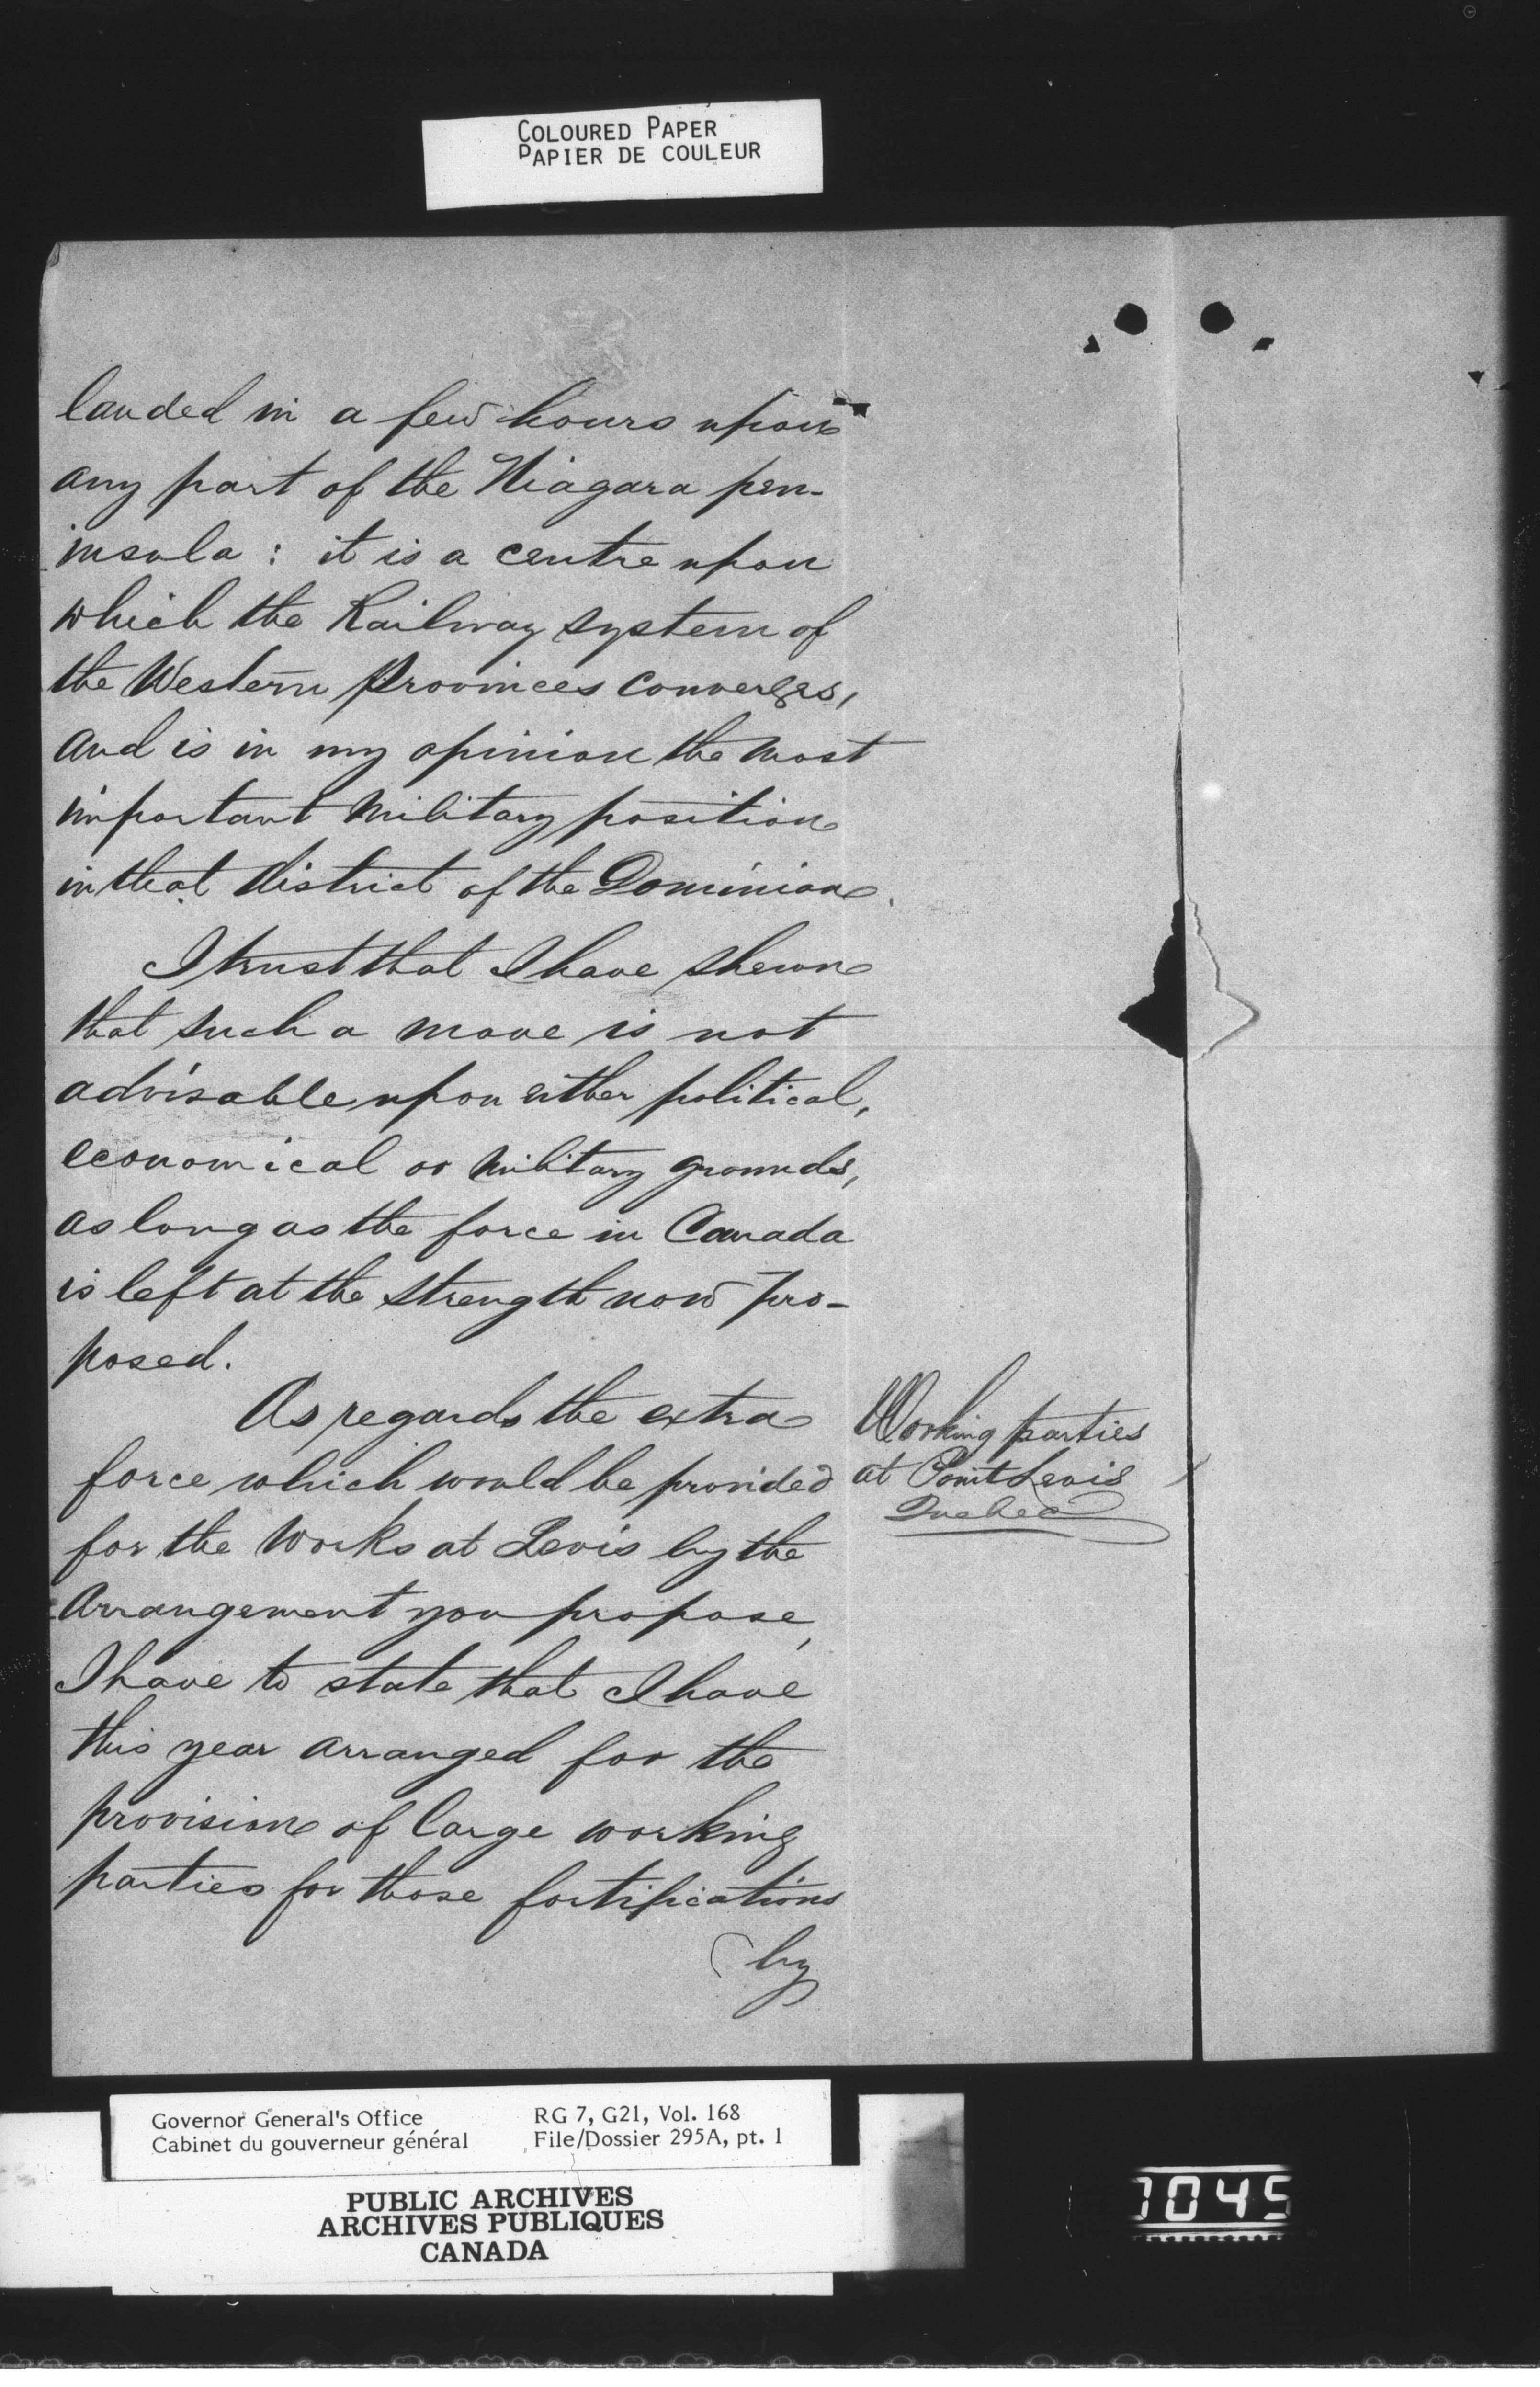 COLOURED PAPER
PAPIER DE COULEUR
landed in a few hours upon
any part of the Niagara pen-
insula : it is a centre upon
which the Railway system of
the Western Provinces converges,
and is in my opinion the most
important military position
in that district of the Dominion.
I trust that I have shewn
that such a move is not
advisable upon either political,
economical or military grounds,
as long as the force in Canada
is left at the strength now pro-
posed.
As regards the extra
force which would be provided
for the works at Levis by the
arrangement you propose,
I have to state that I have
this year arranged for the
provision of large working
parties for those fortifications
by
Working parties
at Point Levis
Quebec
Governor General's Office
Cabinet du gouverneur général
RG 7, G21, Vol. 168
File/Dossier 295A, pt. 1
PUBLIC ARCHIVES
ARCHIVES PUBLIQUES
CANADA
1045